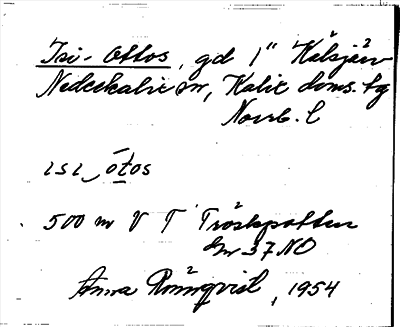 Isi-Ottos, gd 1" Kälsjärv
Nederkalix sn, Kalix doms. tg
Norrb. l
ısı ̮ótos
500 m V T Tröskpotten
br 37 NO
Anna Rönnqvist, 1954